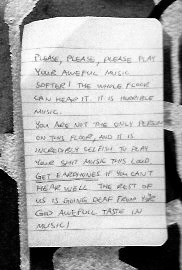 PLEASE, PLEASE, PLEASE PLAY
YOUR AWEFUL MUSIC
SOFTER! THE WHOLE FLOOR
CAN HEAR IT. IT IS HORRIBLE
MUSIC.
YOU ARE NOT THE ONLY PERSON
ON THIS FLOOR, AND IT IS
INCREDIBLY SELFISH TO PLAY
YOUR SHIT MUSIC THIS LOUD.
GET EARPHONES IF YOU CAN'T
HEAR WELL THE REST OF
US IS GOING DEAF FROM YOUR
GOD AWEFULL TASTE IN
MUSIC!